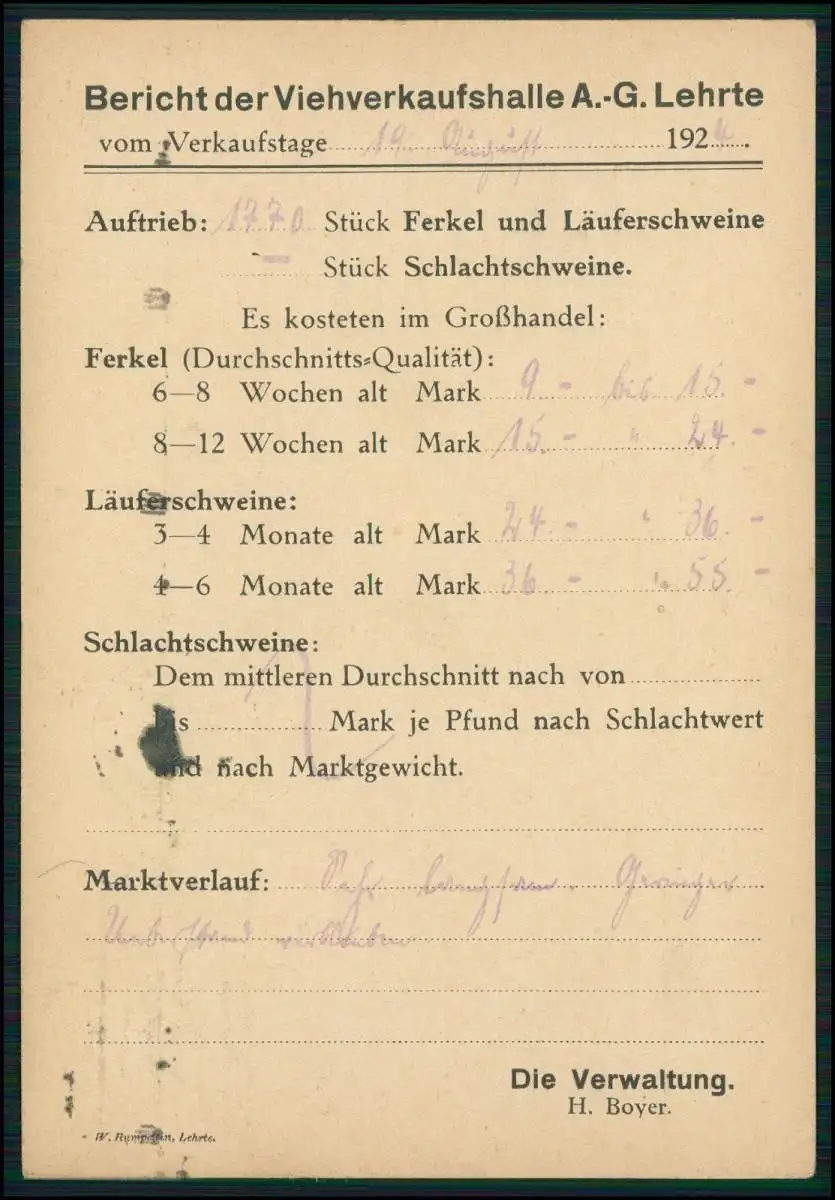 Bericht der Viehverkaufshalle A.-G. Lehrte
vom Verkaufstage 19. August 1924.
Auftrieb: 1770 Stück Ferkel und Läuferschweine
— Stück Schlachtschweine.
Es kosteten im Großhandel:
Ferkel (Durchschnitts-Qualität):
6—8 Wochen alt Mark 9.- bis 15.-
8—12 Wochen alt Mark 15.- " 24.-
Läuferschweine:
3—4 Monate alt Mark 24.- " 36.-
4—6 Monate alt Mark 36.- " 55.-
Schlachtschweine:
Dem mittleren Durchschnitt nach von
bis Mark je Pfund nach Schlachtwert
und nach Marktgewicht.
Marktverlauf: Sehr langsam. Geringer
Ueberstand verblieben
Die Verwaltung.
H. Boyer.
W. Rumpeltin, Lehrte.